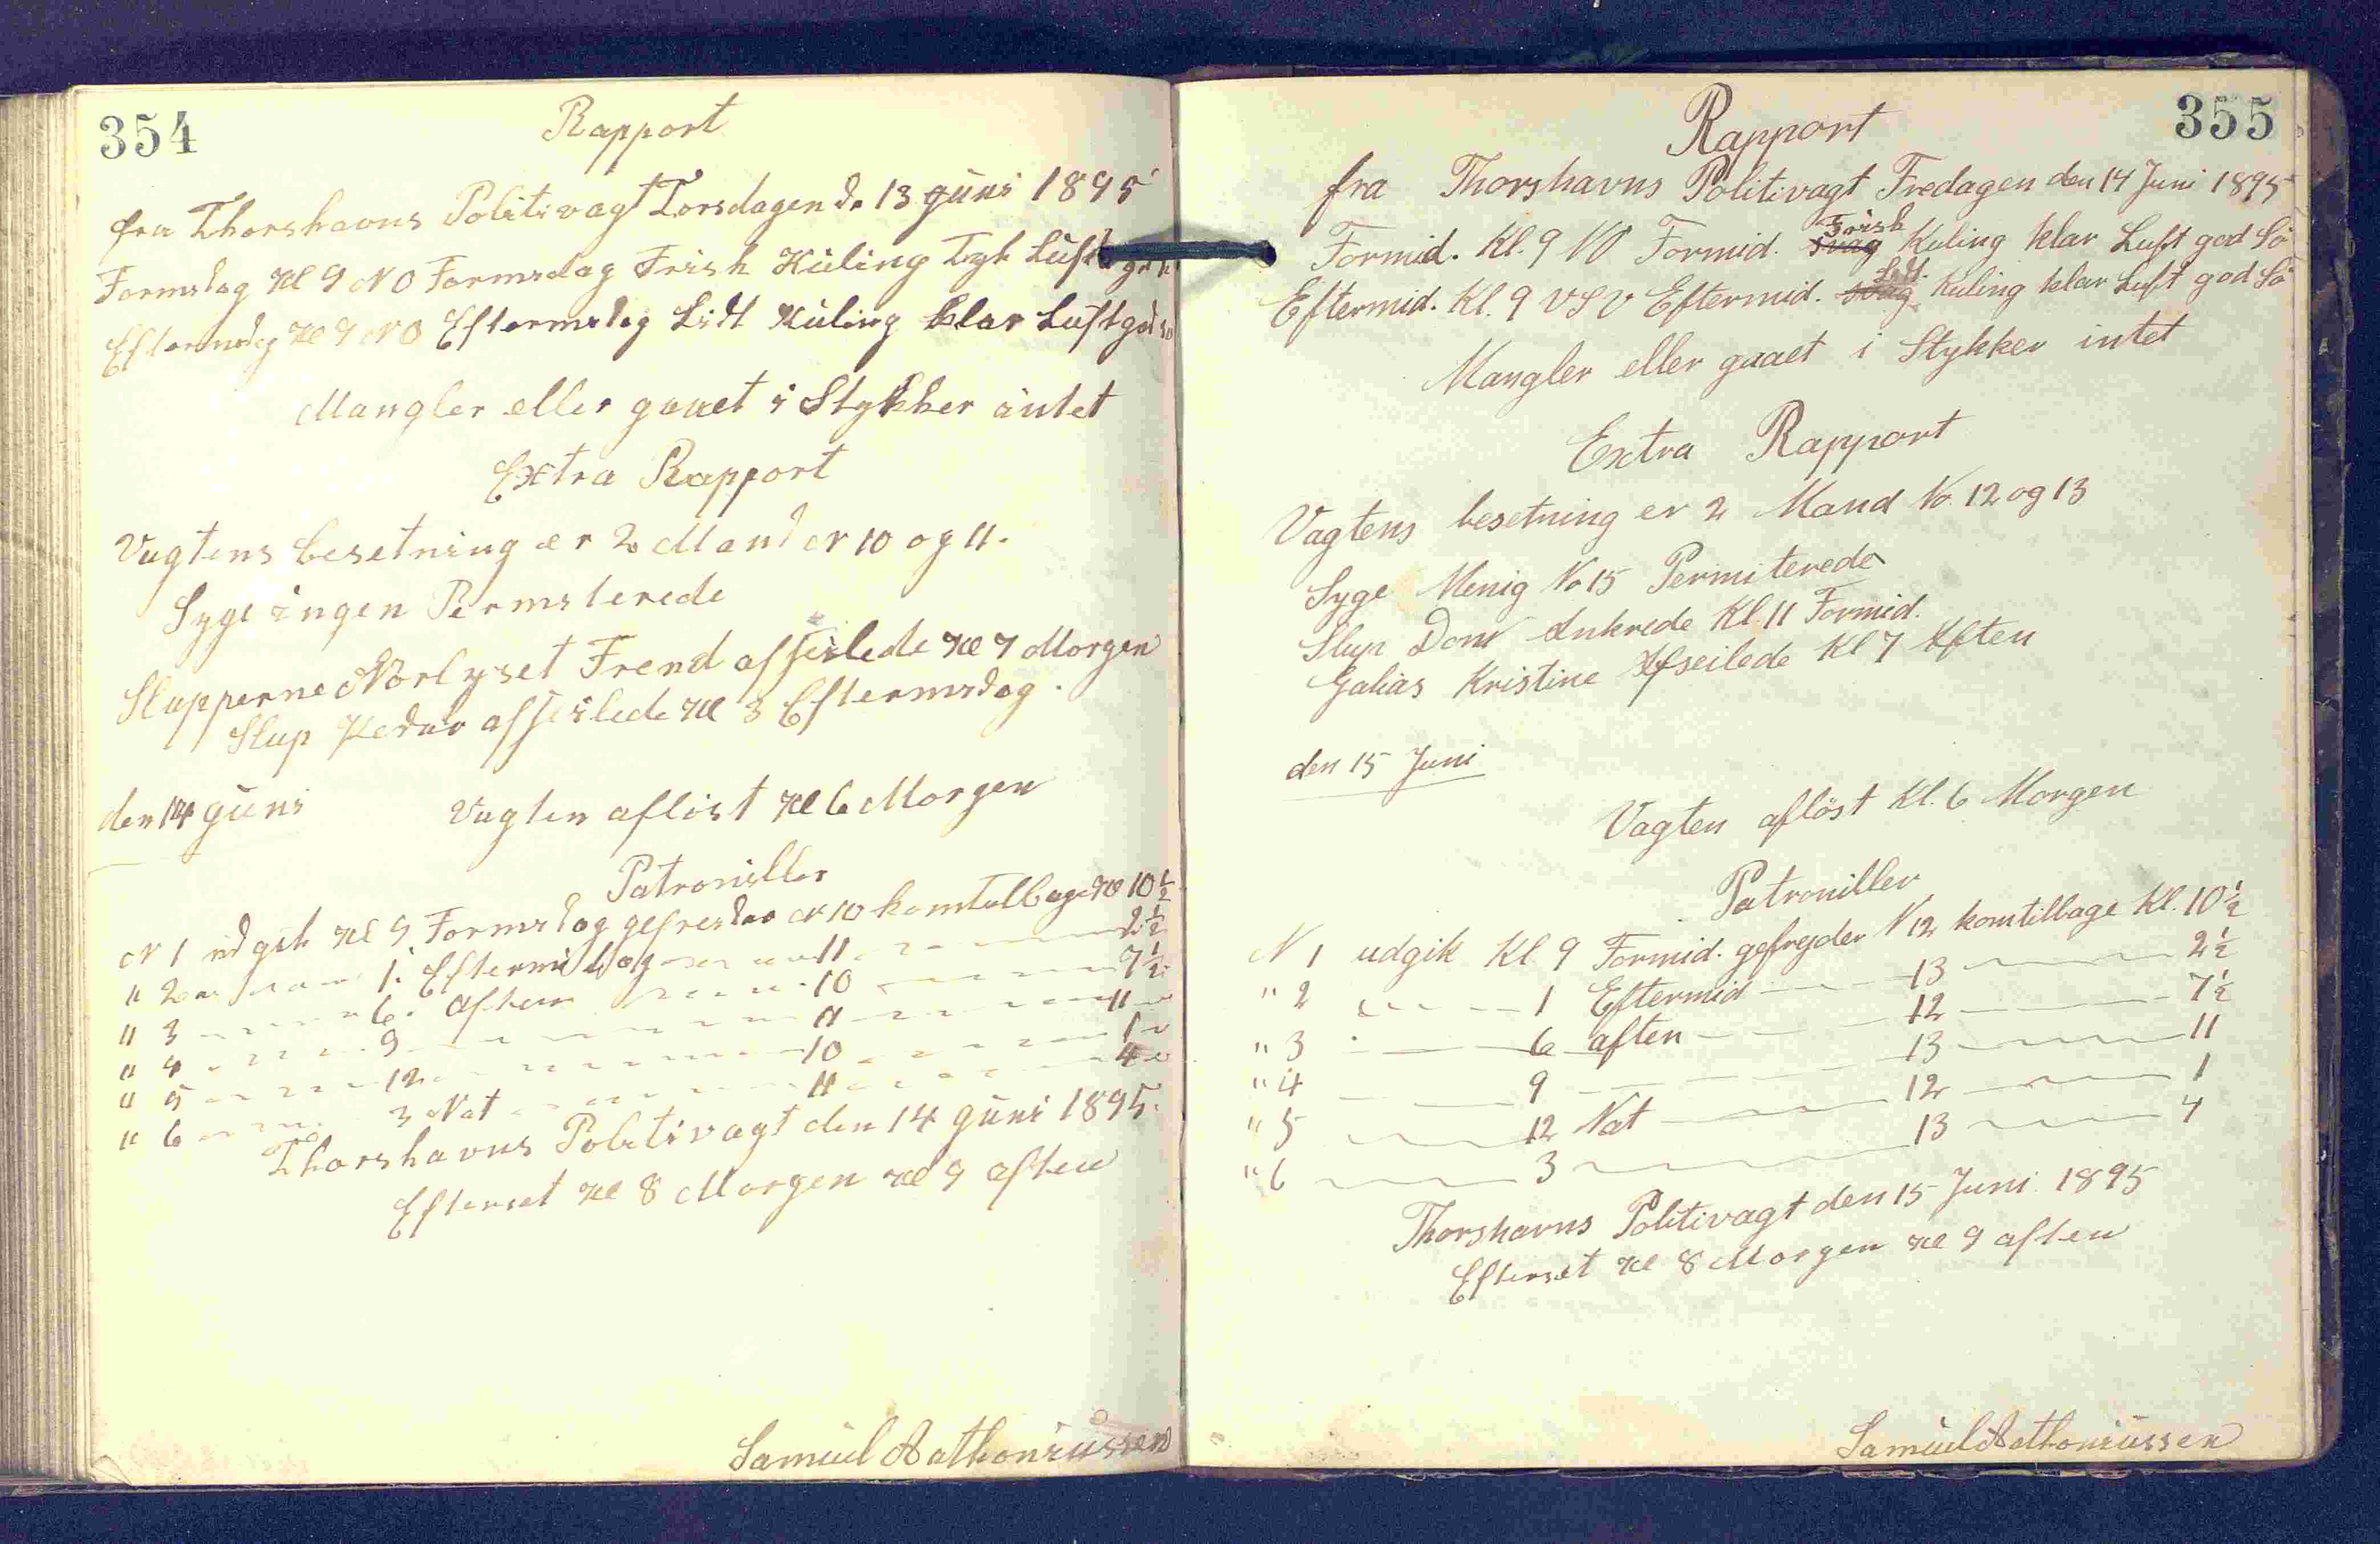 354
Rapport
fra Thorshavns Politivagt Torsdagen d. 13 Juni 1895
Formidag Kl 9 NO Formidag Frisk Kuling Tyk Luft
Eftermidag Kl 9 NO Eftermidag Lidt Kuling klar Luft
Mangler eller gaaet i Stykker intet
Extra Rapport
Vagtens besetning er 2 Mand Nr 10 og 11.
Syge ingen Permiterede
Slupperne Norlyset Frend afseilede Kl 7 Morgen
Slup afseilede Kl 3 Eftermidag.
den 14 Juni Vagten afløst Kl 6 Morgen
Patrouiller
Nr 1 udgik Kl 9 Formidag gefreider Nr 10 komtilbage Kl 10 1/2
" 2 1. Eftermidag 11 2 1/2
" 3 6. aften 10 7 1/2
" 4 9 11 11
" 5 12 10 1
" 6 3 Nat 11 4
Thorshavns Politivagt den 14 Juni 1895.
Efterset Kl 8 Morgen Kl 9 aften
Samuel Aathoniussen
355
Rapport
fra Thorshavns Politivagt Fredagen den 14 Juni 1895
Formid. Kl. 9 NO Formid. svag Frisk Kuling klar Luft god Sö
Eftermid. Kl. 9 VSV Eftermid. svag Lidt. Kuling klar Luft god Sö
Mangler eller gaaet i Stykker intet
Extra Rapport
Vagtens besetning er 2 Mand No. 12 og 13
Syge Menig No 15 Permiterede
Slup Don Ankrede Kl. 11 Formid.
Galias Kristine Afseilede Kl 7 Aften
den 15 Juni
Vagten aflöst Kl. 6 Morgen
Patrouiller
N 1 udgik Kl. 9 Formid. gefrejder N 12 komtilbage Kl. 10 1/2
" 2 1 Eftermid 13 2 1/2
" 3 6 aften 12 7 1/2
" 4 9 13 11
" 5 12 Nat 12 1
" 6 3 13 4
Thorshavns Politivagt den 15 Juni 1895
Efterset Kl 8 Morgen Kl 9 aften
Samuel Aathoniussen